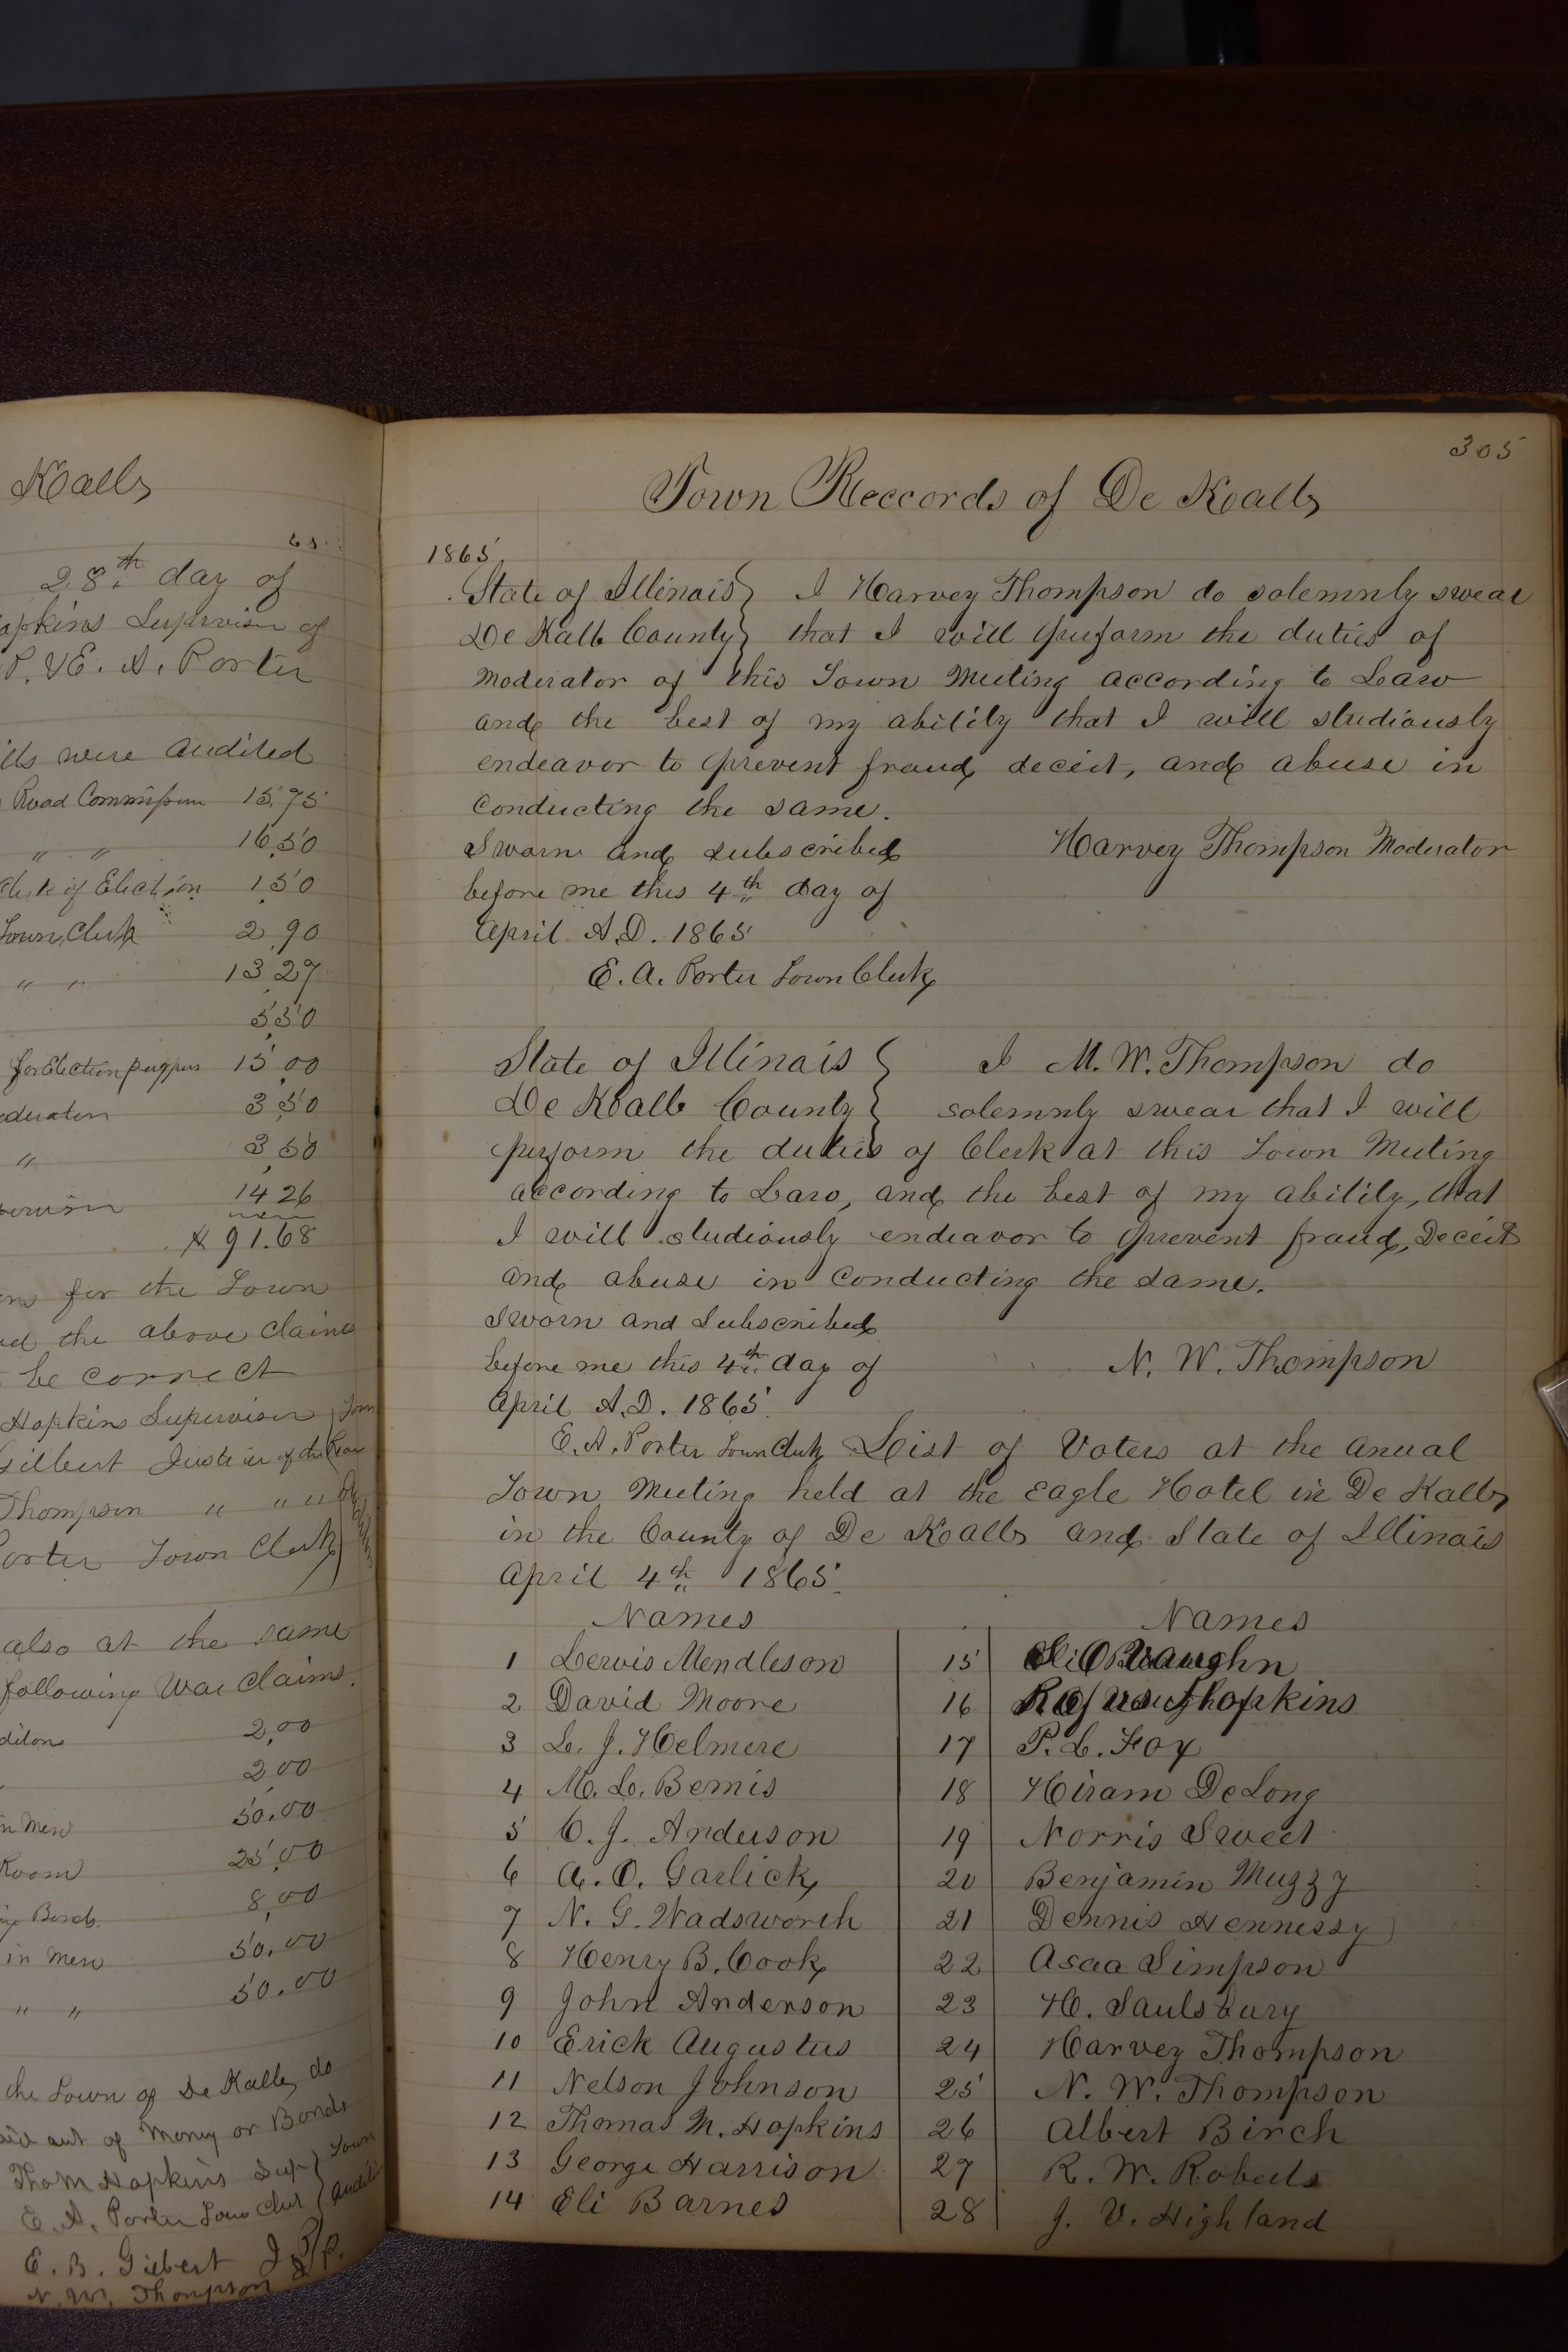 Kalb
65.
28th day of
opkins Supervisor of
P. & E. A. Porter
ills were audited
Road Commission 15,75
" " 16,50
Clerk of Election 1,50
Town Clerk 2,90
" " 13,27
5,50
for Election purposes 15,00
oderator 3,50
" 3,50
pervisor 14 26
91.68
for the Town
the above claims
be correct
Hopkins Supervisor Town
Gilbert Justice of the Peace
Thompson " " "
orter Town Clerk
also at the same
following War claims.
ditons 2,00
2,00
in Men 50,00
Room 25,00
8,00
Bonds
in Men 50,00
" " 50.00
the Town of De Kalb do
out of Money or Bonds
Thos M Hopkins Sup Town
E. A. Porter Town Clerk
E. B. Gilbert J P.
N. W. Thompson
305
Town Reccords of De Kalb
1865
State of Illinois } I Harvey Thompson do solemnly swear
De Kalb County } that I will perform the duties of
Moderator of this Town Meeting according to Law
and the best of my ability that I will studiously
endeavor to prevent fraud, deceit, and abuse in
conducting the same.
Sworn and subscribed Harvey Thompson Moderator
before me this 4th day of
April A.D. 1865
E. A. Porter Town Clerk
State of Illinois } I M. W. Thompson do
De Kalb County } solemnly swear that I will
perform the duties of Clerk at this Town Meeting
according to Law, and the best of my ability, that
I will studiously endeavor to prevent fraud, Deceit
and abuse in conducting the same.
Sworn and Subscribed
before me this 4th day of N. W. Thompson
April A.D. 1865.
E. A. Porter Town Clerk List of Voters at the Anual
Town Meeting held at the Eagle Hotel in De Kalb
in the County of De Kalb and State of Illinois
April 4th 1865.
Names Names
1 Lewis Mendleson 15 Vaughn
2 David Moore 16 Rufus Hopkins
3 L. J. Helmere 17 P. L. Fox
4 M. L. Bemis 18 Hiram DeLong
5 C. J. Anderson 19 Norris Sweet
6 A. O. Garlick 20 Benjamin Muzzy
7 N. G. Wadsworth 21 Dennis Hennessy
8 Henry B. Cook 22 Asaa Simpson
9 John Anderson 23 H. Saulsbury
10 Erick Augustus 24 Harvey Thompson
11 Nelson Johnson 25 N. W. Thompson
12 Thomas M. Hopkins 26 Albert Birch
13 George Harrison 27 R. W. Roberts
14 Eli Barnes 28 J. V. Highland